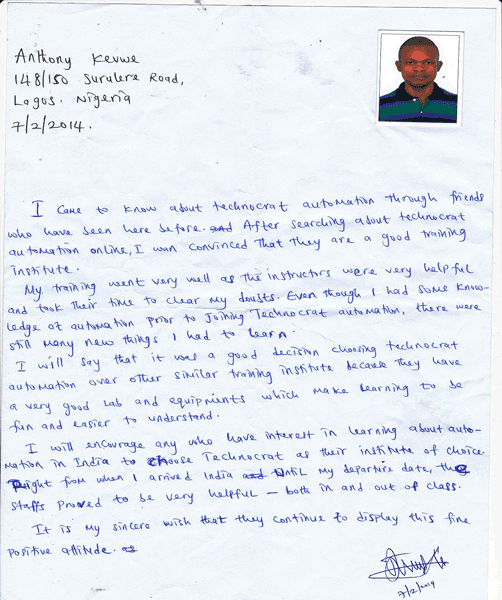 Anthony Kevwe
148/150 Surulere Road,
Lagos. Nigeria
7/2/2014.
I came to know about technocrat automation through friends
who have been here before. and After searching about technocrat
automation online, I was convinced that they are a good training
institute.
My training went very well as the instructors were very helpful
and took their time to clear my doubts. Even though I had some know-
ledge of automation prior to joining Technocrat automation, there were
still many new things I had to learn.
I will say that it was a good decision choosing technocrat
automation over other similar training institute because they have
a very good Lab and equipments which make learning to be
fun and easier to understand.
I will encourage any who have interest in learning about auto-
mation in India to choose Technocrat as their institute of choice.
Right from when I arrived India and Until my departure date, the
staffs proved to be very helpful – both in and out of class.
It is my sincere wish that they continue to display this fine
positive attitude.
7/2/2014